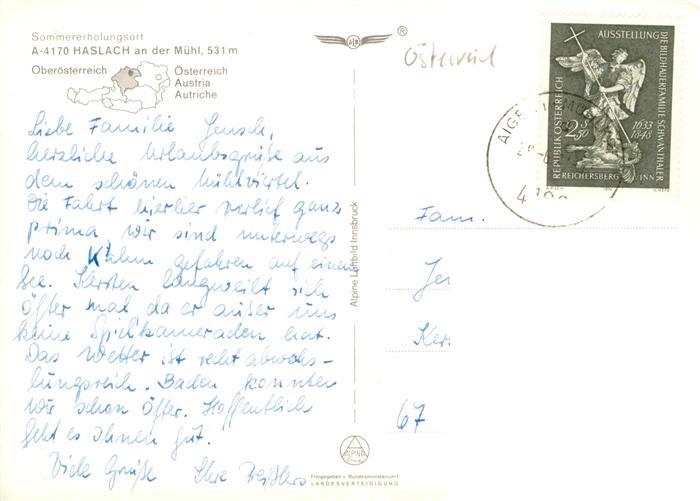 Sommererholungsort
A-4170 HASLACH an der Mühl, 531 m
Oberösterreich
Österreich
Austria
Autriche
Liebe Familie Jensch,
herzliche Urlaubsgrüße aus
dem schönen Mühlviertel.
Die Fahrt hierher verlief ganz
prima wir sind unterwegs
noch Kahn gefahren auf einem
See. Kersten langweilt sich
öfter mal da er außer uns
keine Spielkameraden hat.
Das Wetter ist recht abwechs-
lungsreich. Baden konnten
wir schon öfter. Hoffentlich
geht es Ihnen gut.
Viele Grüße Ihre
Alpine Luftbild Innsbruck
®
Österreich
AUSSTELLUNG
DIE BILDHAUERFAMILIE SCHWANTHALER
REPUBLIK ÖSTERREICH
2 S 50
1633
1848
REICHERSBERG INN
AIGEN
Fam.
Jen
Ker.
67
ALPINE
Freigegeben v. Bundesministerium f.
LANDESVERTEIDIGUNG